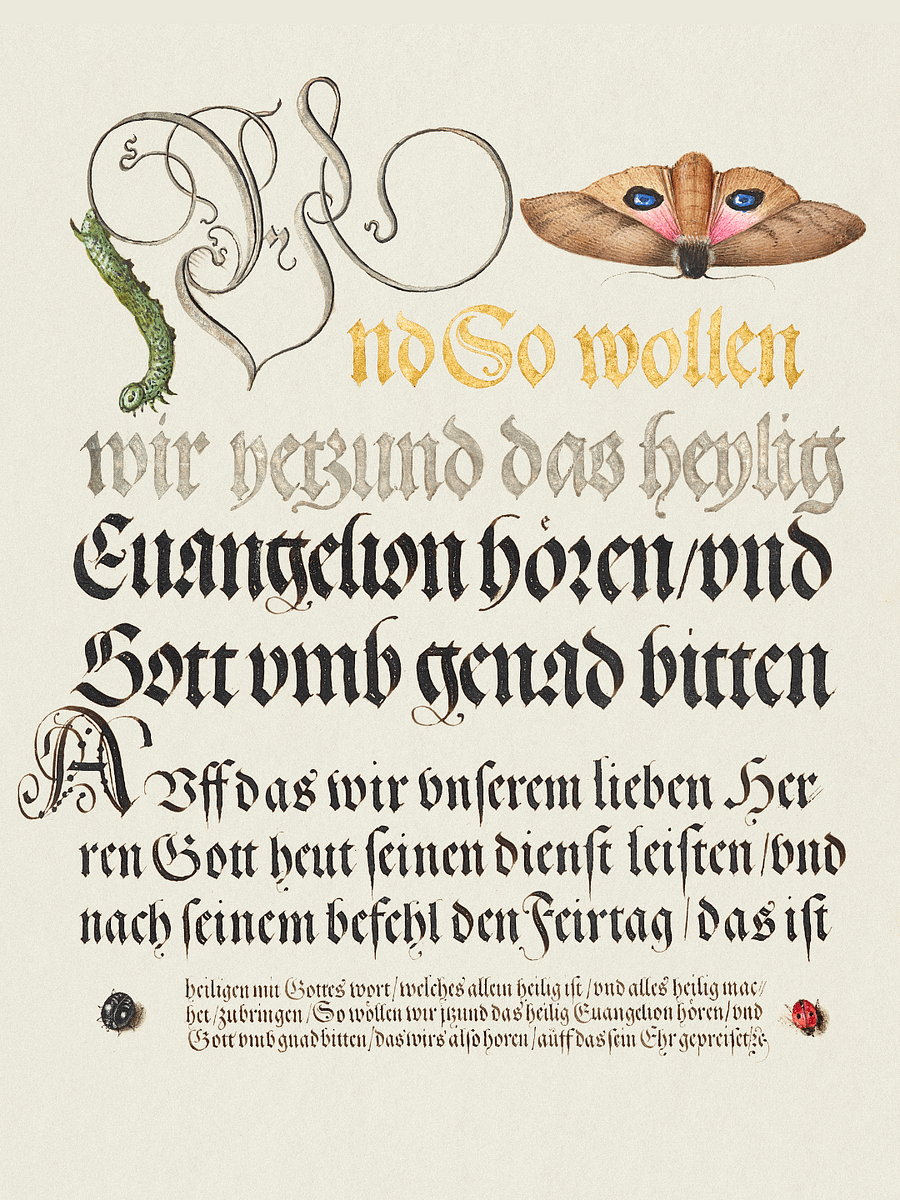 Vnd So wollen
wir yetzund das heylig
Euangelion hören/vnd
Gott vmb genad bitten
AVff das wir vnſerem lieben Her⸗
ren Gott heut ſeinen dienſt leiſten/vnd
nach ſeinem befehl den Feirtag/das iſt
heiligen mit Gottes wort/welches allein heilig iſt/vnd alles heilig mac⸗
het/zubringen/So wöllen wir jtzund das heilig Euangelion hören/vnd
Gott vmb gnad bitten/das wirs also horen/auff das sein Ehr gepreiset/ꝛc